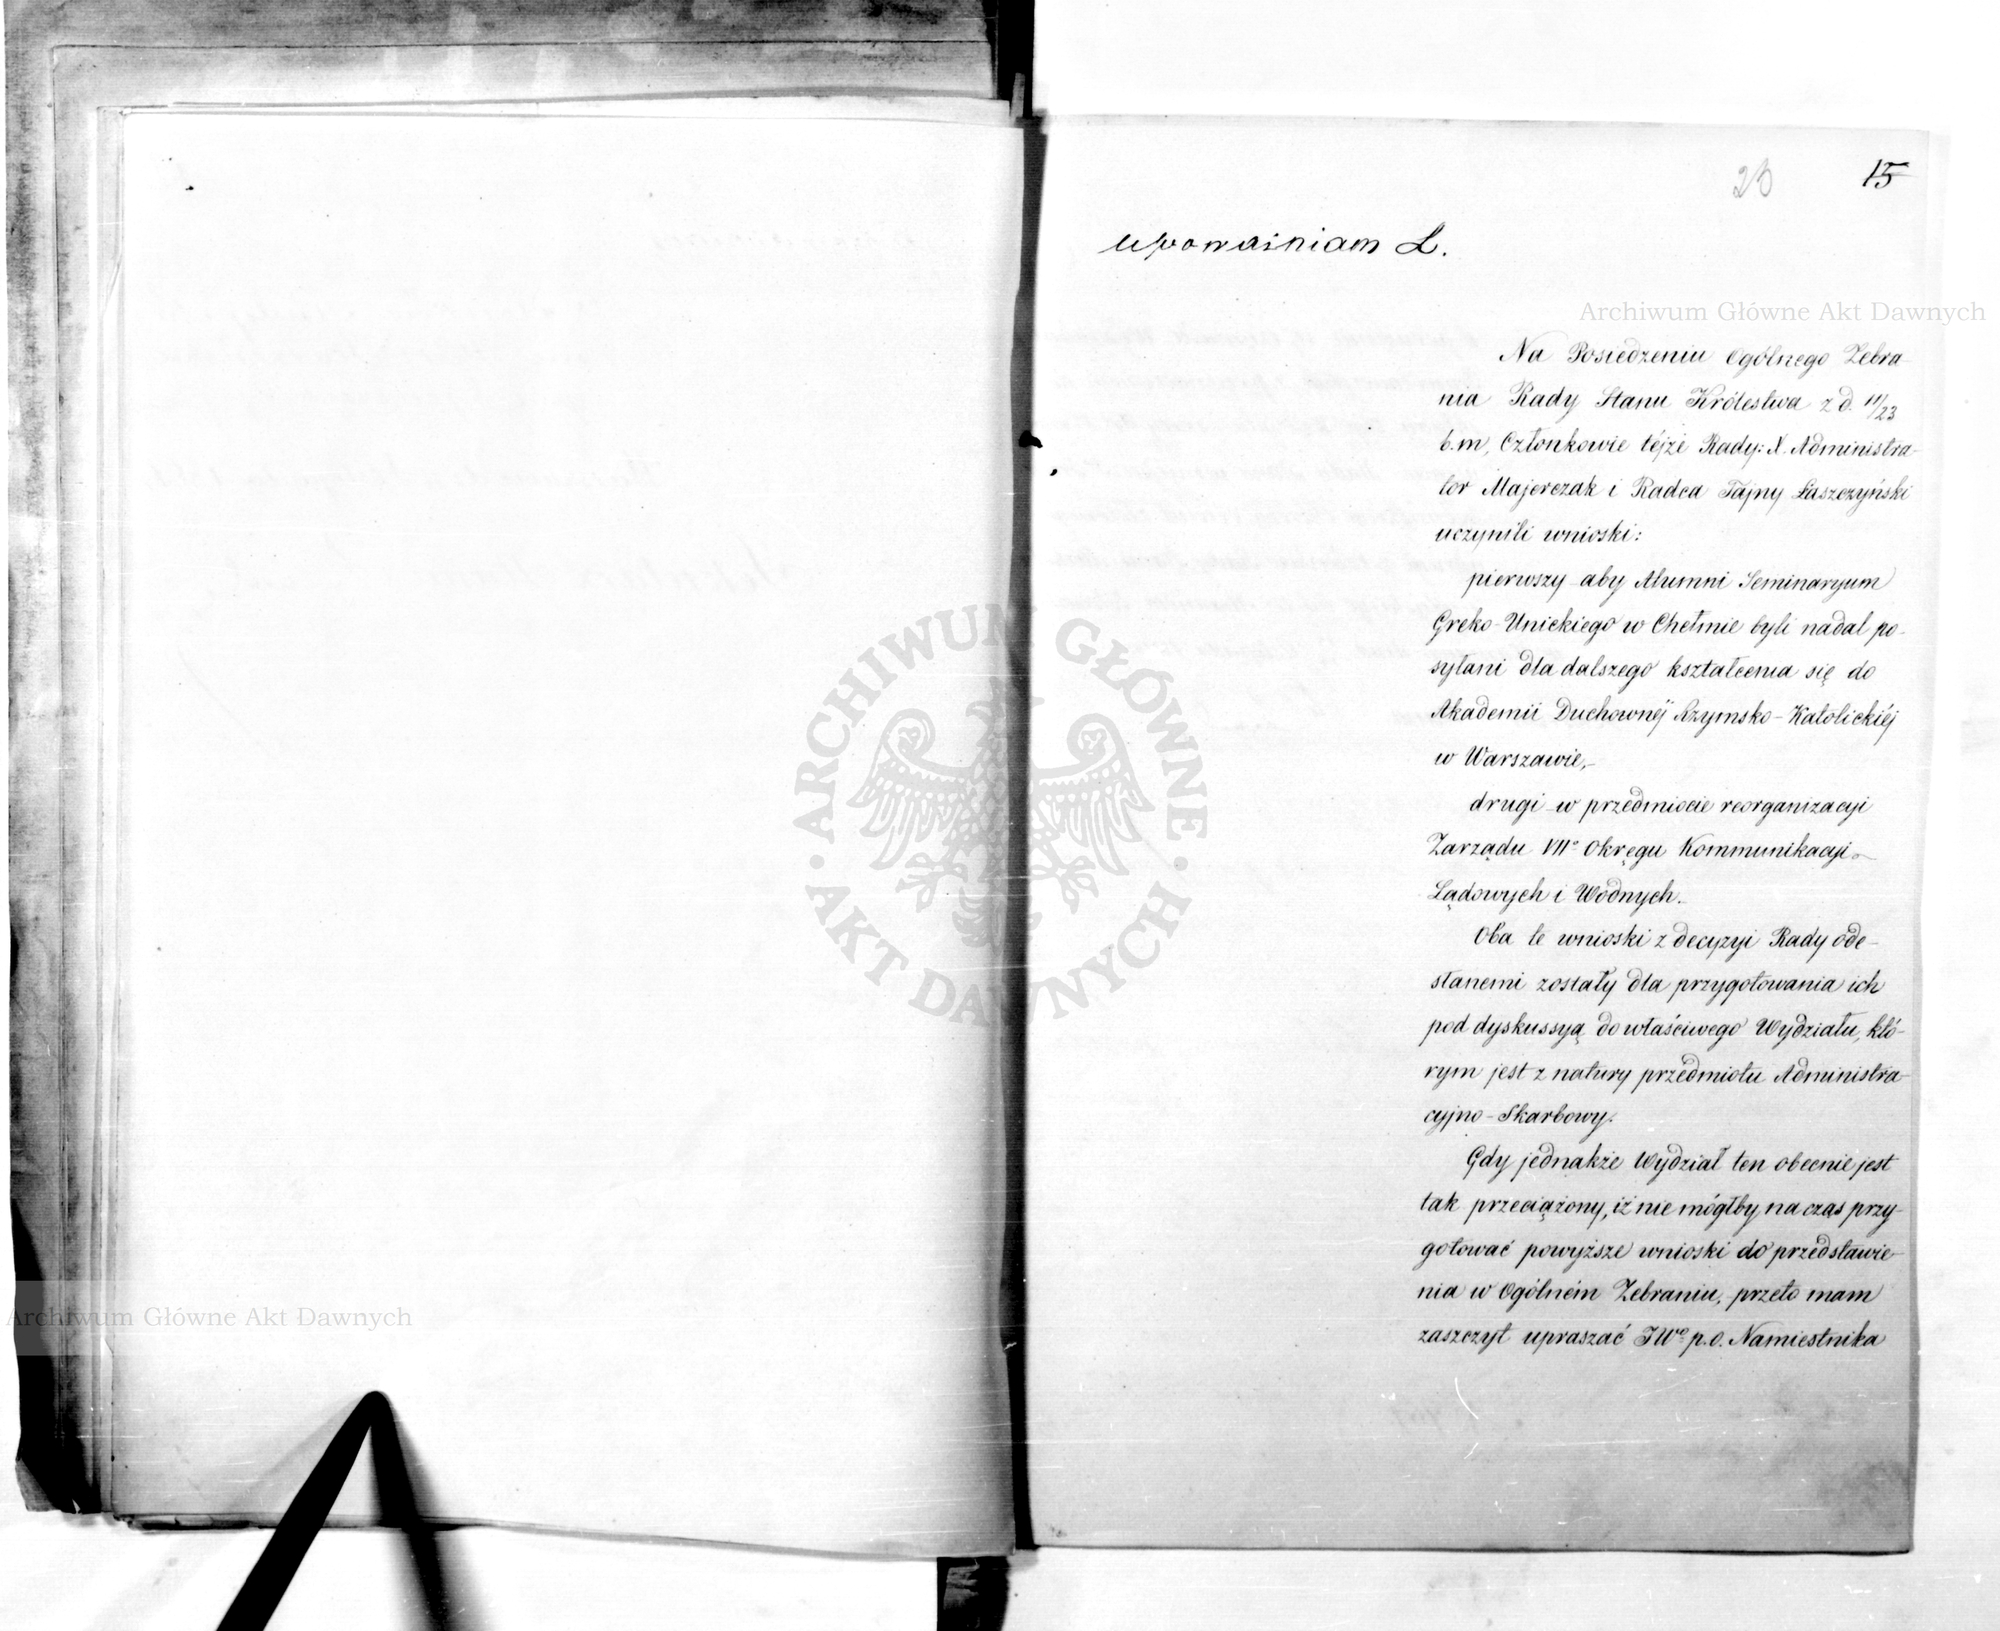 15
upoważniam L.
Na Posiedzeniu Ogólnego Zebra-
nia Rady Stanu Królestwa z d. 11/23
b.m, Członkowie téjże Rady: X. Administra-
tor Majerczak i Radca Tajny Łaszczyński
uczynili wnioski:
pierwszy - aby Alumni Seminaryum
Greko-Unickiego w Chełmie byli nadal po-
syłani dla dalszego kształcenia się do
Akademii Duchownéj Rzymsko-Katolickiéj
w Warszawie,-
drugi - w przedmiocie reorganizacyi
Zarządu VIIo Okręgu Kommunikacyi
Lądowych i Wodnych.-
Oba te wnioski z decyzyi Rady ode-
słanemi zostały dla przygotowania ich
pod dyskussyą do właściwego Wydziału, któ-
rym jest z natury przedmiotu Administra-
cyjno-Skarbowy.
Gdy jednakże Wydział ten obecnie jest
tak przeciążony, iż nie mógłby na czas przy-
gotować powyższe wnioski do przedstawie-
nia w Ogólném Zebraniu, przeto mam
zaszczyt upraszać JWo p.o. Namiestnika
Archiwum Główne Akt Dawnych
Archiwum Główne Akt Dawnych
ARCHIWUM GŁÓWNE · AKT DAWNYCH ·